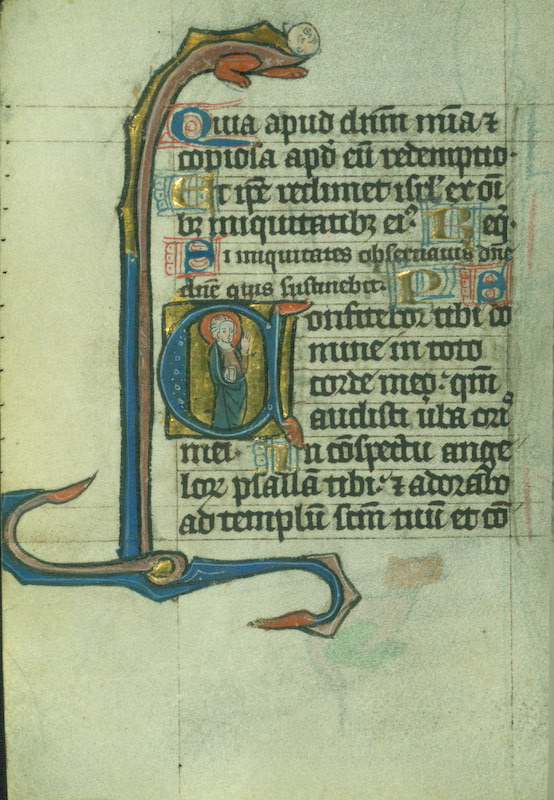 Quia apud dnm mia ⁊
copiosa apd eū redemptio.
Et ipe redimet isrl' ex oi
bꝫ iniquitatibꝫ ei⁹. R eqͥ.
Si iniquitates obseruaueris dne
dne quis sustinebit. P S
Confitebor tibi do
mine in toto
corde meo. qm̄
audisti úba oris
mei. In cōspectu ange
loꝝ psallā tibi. ⁊ adorabo
ad templū scm tuū et cō